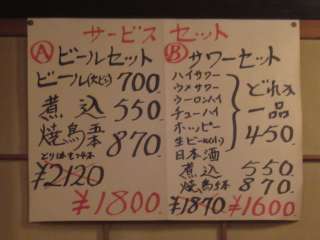 サービスセット
Ⓐビールセット
ビール(大ビン) 700
煮込 550
焼鳥5本 870
¥2120
¥1800
Ⓑサワーセット
ハイサワー
ウメサワー
ウーロンハイ
チューハイ
ホッピー
生ビール(小)
日本酒
どれも
一品
450
煮込 550
焼鳥5本 870
¥1870 ¥1600